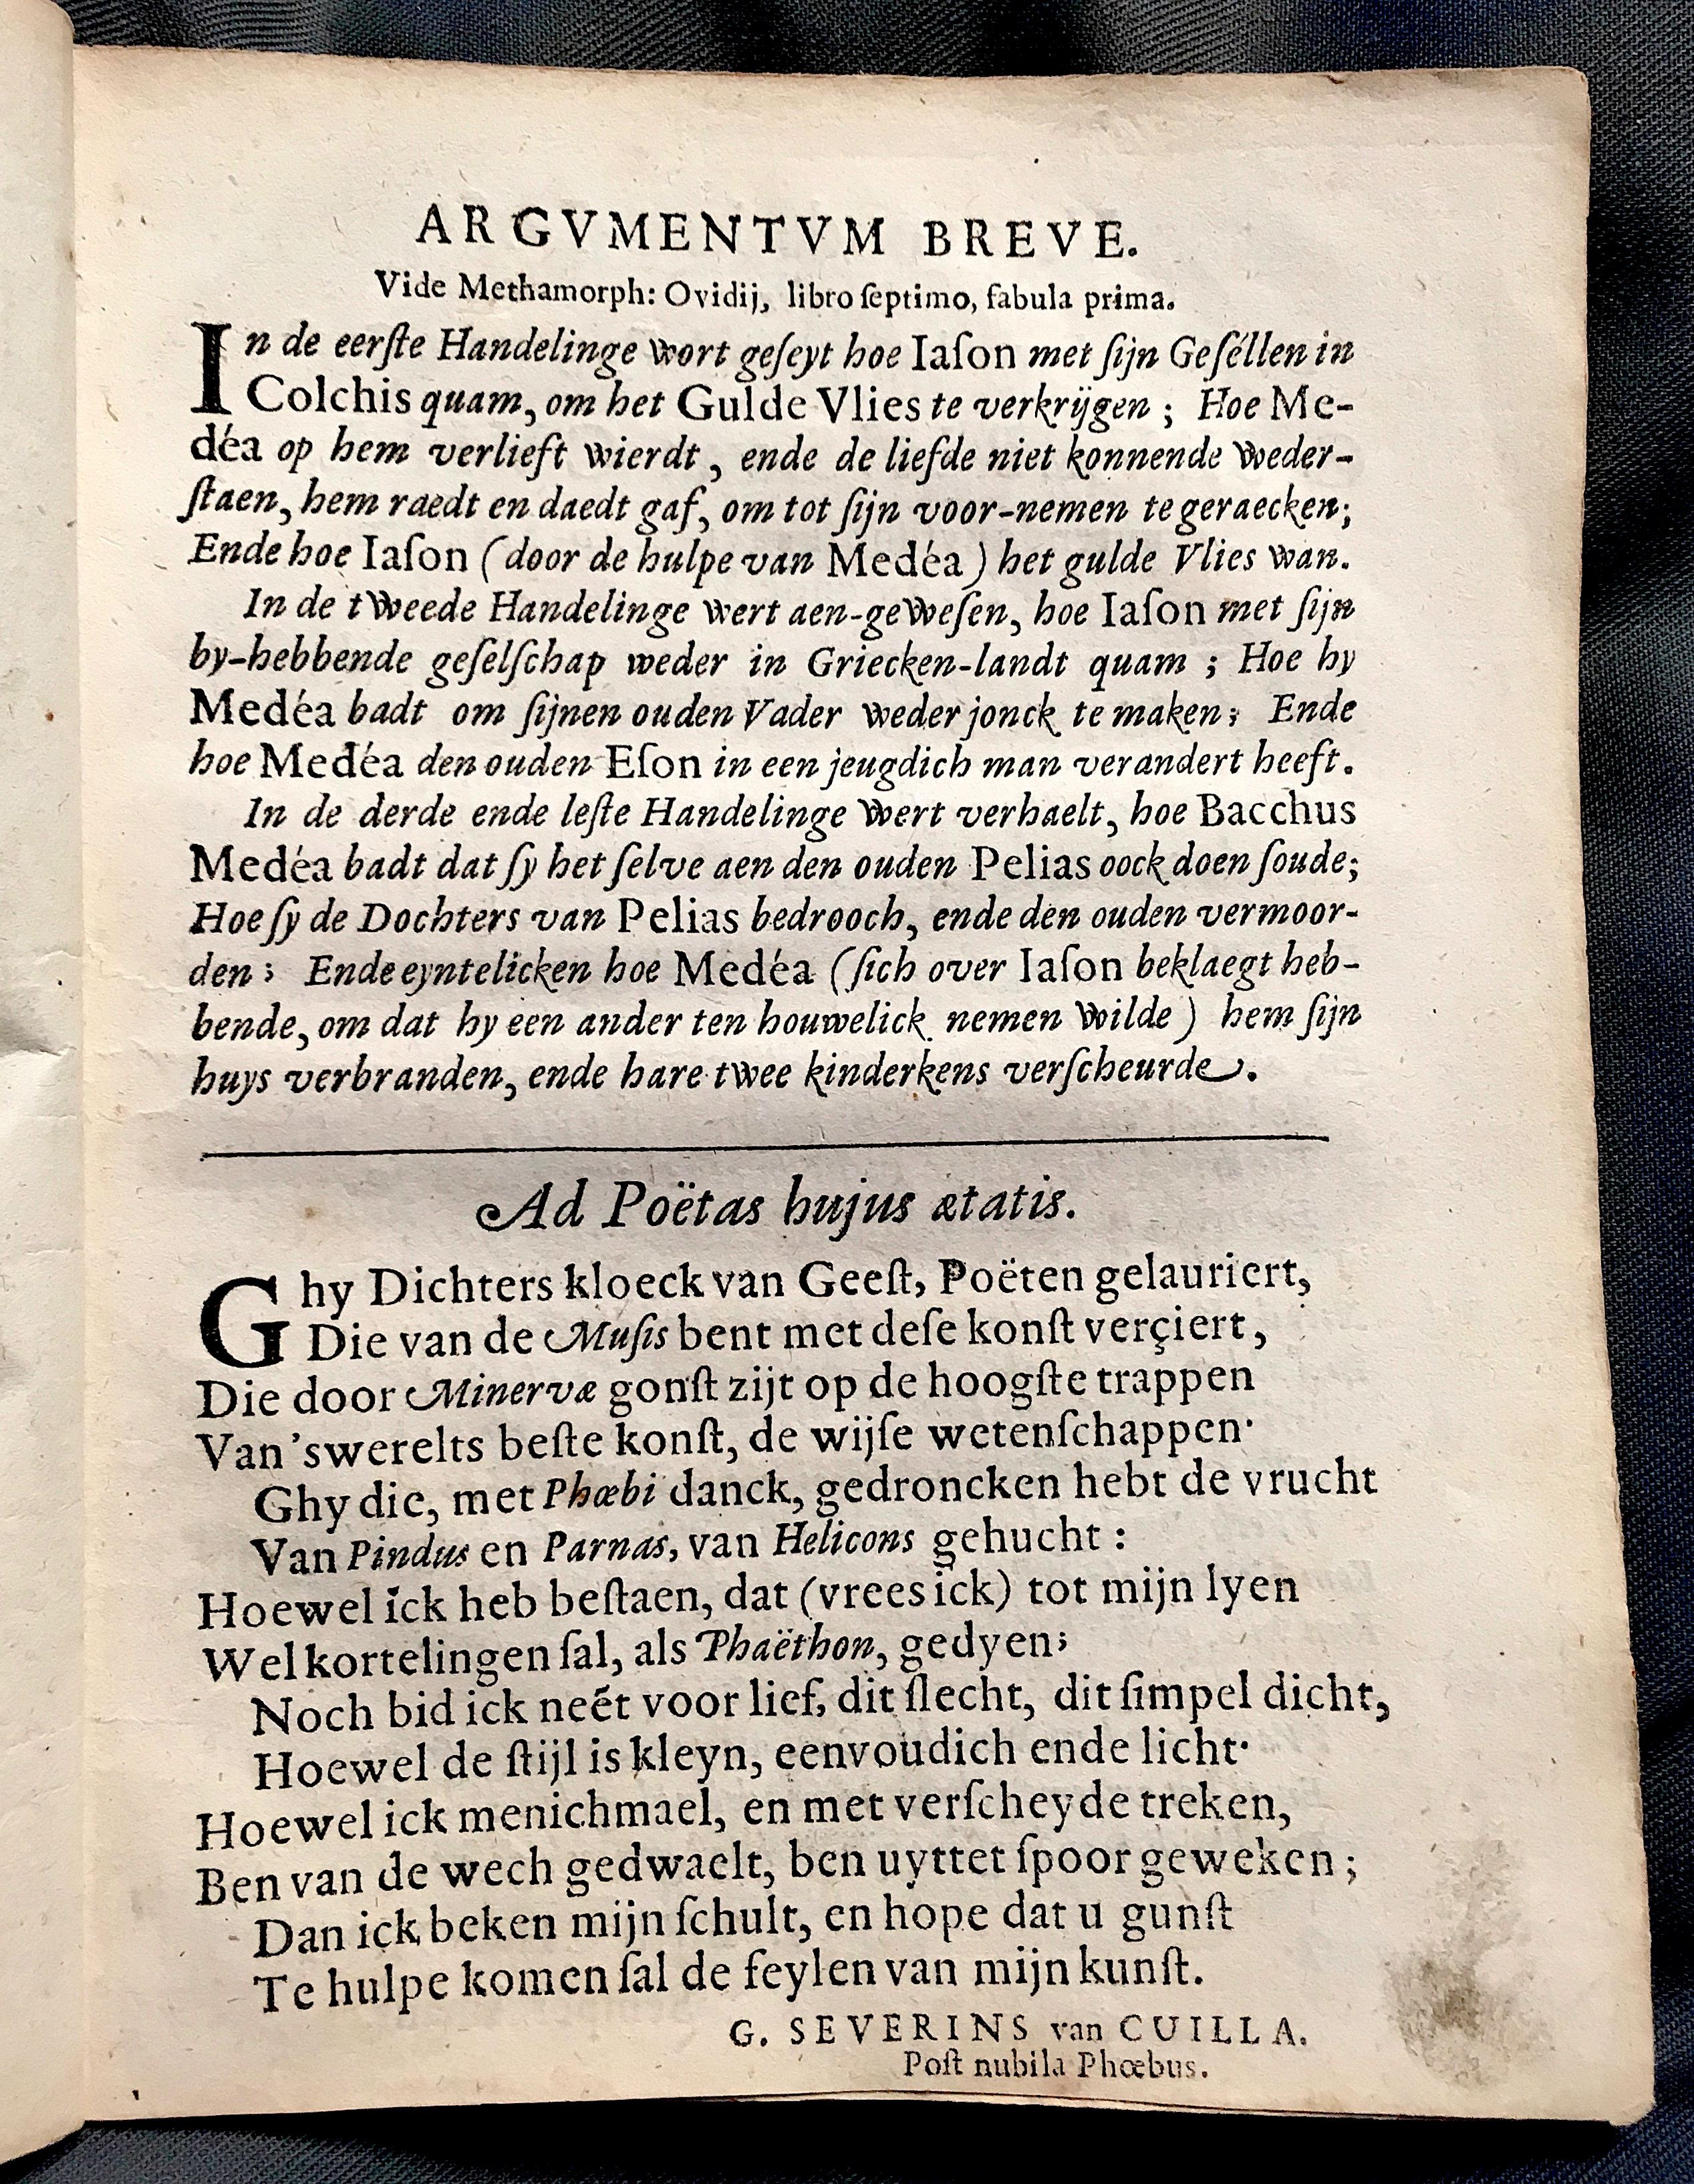 ARGVMENTVM BREVE.
Vide Methamorph: Ovidij, libro ſeptimo, fabula prima.
In de eerſte Handelinge wort geſeyt hoe Iaſon met ſijn Geſéllen in
Colchis quam, om het Gulde Vlies te verkrijgen ; Hoe Me-
déa op hem verlieft wierdt, ende de liefde niet konnende weder-
ſtaen, hem raedt en daedt gaf, om tot ſijn voor-nemen te geraecken;
Ende hoe Iaſon (door de hulpe van Medéa) het gulde Vlies wan.
In de tweede Handelinge wert aen-geweſen, hoe Iaſon met ſijn
by-hebbende geſelſchap weder in Griecken-landt quam ; Hoe hy
Medéa badt om ſijnen ouden Vader weder jonck te maken; Ende
hoe Medéa den ouden Eſon in een jeugdich man verandert heeft.
In de derde ende leſte Handelinge wert verhaelt, hoe Bacchus
Medéa badt dat ſy het ſelve aen den ouden Pelias oock doen ſoude;
Hoe ſy de Dochters van Pelias bedrooch, ende den ouden vermoor-
den; Ende eyntelicken hoe Medéa (ſich over Iaſon beklaegt heb-
bende, om dat hy een ander ten houwelick nemen wilde) hem ſijn
huys verbranden, ende hare twee kinderkens verſcheurde.
Ad Poëtas hujus ætatis.
Ghy Dichters kloeck van Geeſt, Poëten gelauriert,
Die van de Muſis bent met deſe konſt verçiert,
Die door Minervæ gonſt zijt op de hoogſte trappen
Van 'swerelts beſte konſt, de wijſe wetenſchappen·
Ghy die, met Phœbi danck, gedroncken hebt de vrucht
Van Pindus en Parnas, van Helicons gehucht :
Hoewel ick heb beſtaen, dat (vrees ick) tot mijn lyen
Wel kortelingen ſal, als Phaëthon, gedyen;
Noch bid ick neét voor lief, dit ſlecht, dit ſimpel dicht,
Hoewel de ſtijl is kleyn, eenvoudich ende licht·
Hoewel ick menichmael, en met verſcheyde treken,
Ben van de wech gedwaelt, ben uyttet ſpoor geweken ;
Dan ick beken mijn ſchult, en hope dat u gunſt
Te hulpe komen ſal de feylen van mijn kunſt.
G. SEVERINS van CUILLA.
Poſt nubila Phœbus.